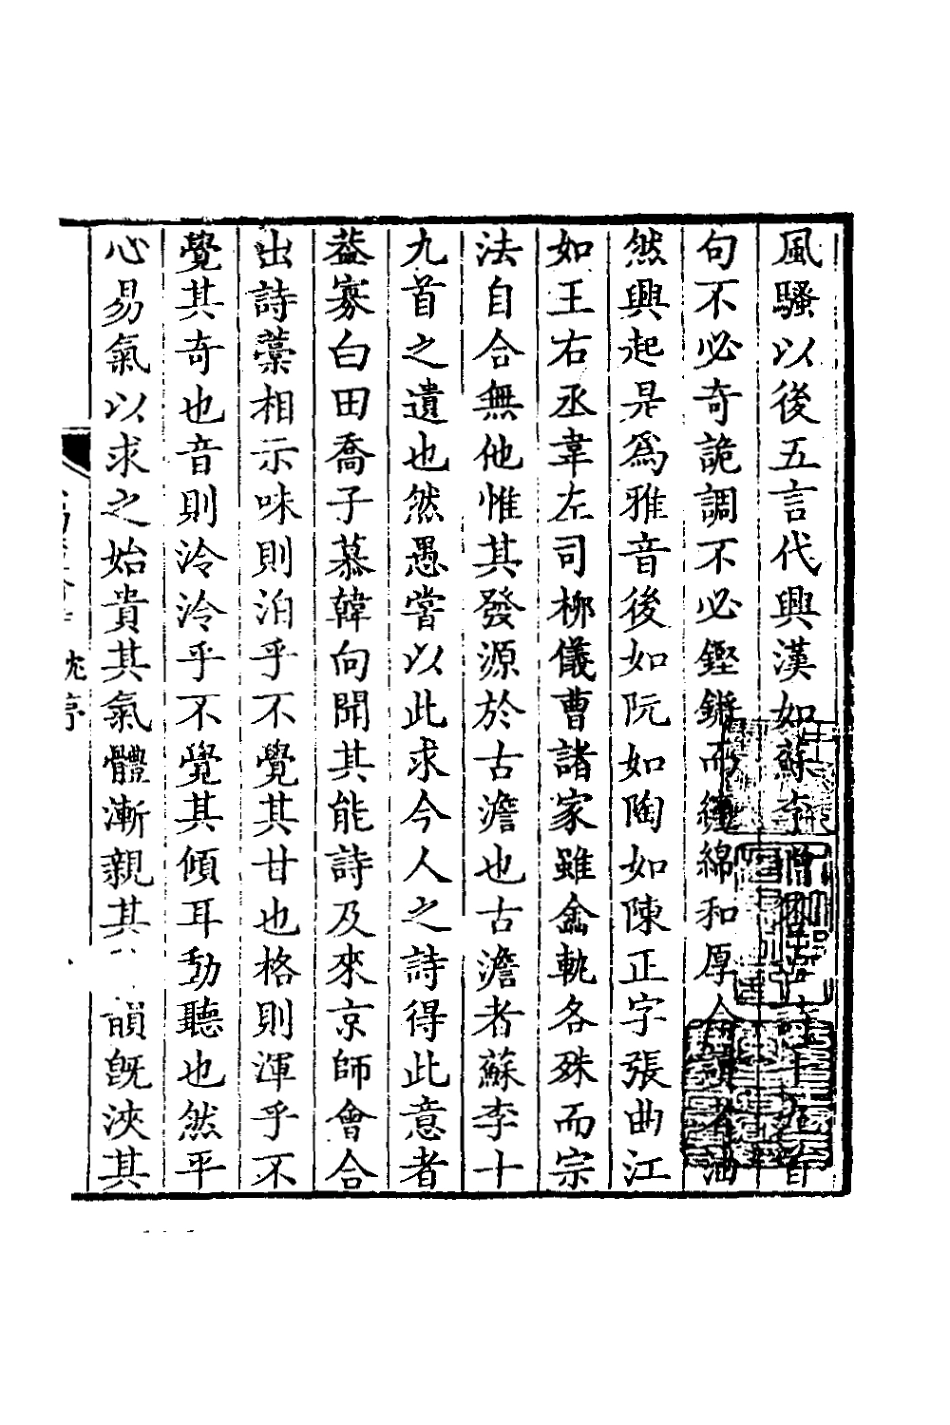 風騷以後五言代興漢如蘇李
句不必奇詭調不必鏗鏘而纏綿和厚令讀者油
然興起是爲雅音後如阮如陶如陳正字張曲江
如王右丞韋左司柳儀曹諸家雖龠軌各殊而宗
法自合無他惟其發源於古澹也古澹者蘇李十
九首之遺也然愚嘗以此求今人之詩得此意者
葢寡白田喬子慕韓向聞其能詩及來京師會合
出詩藳相示味則泊乎不覺其甘也格則渾乎不
覺其奇也音則泠泠乎不覺其傾耳動聽也然平
心易氣以求之始貴其氣體漸親其韻旣浹其